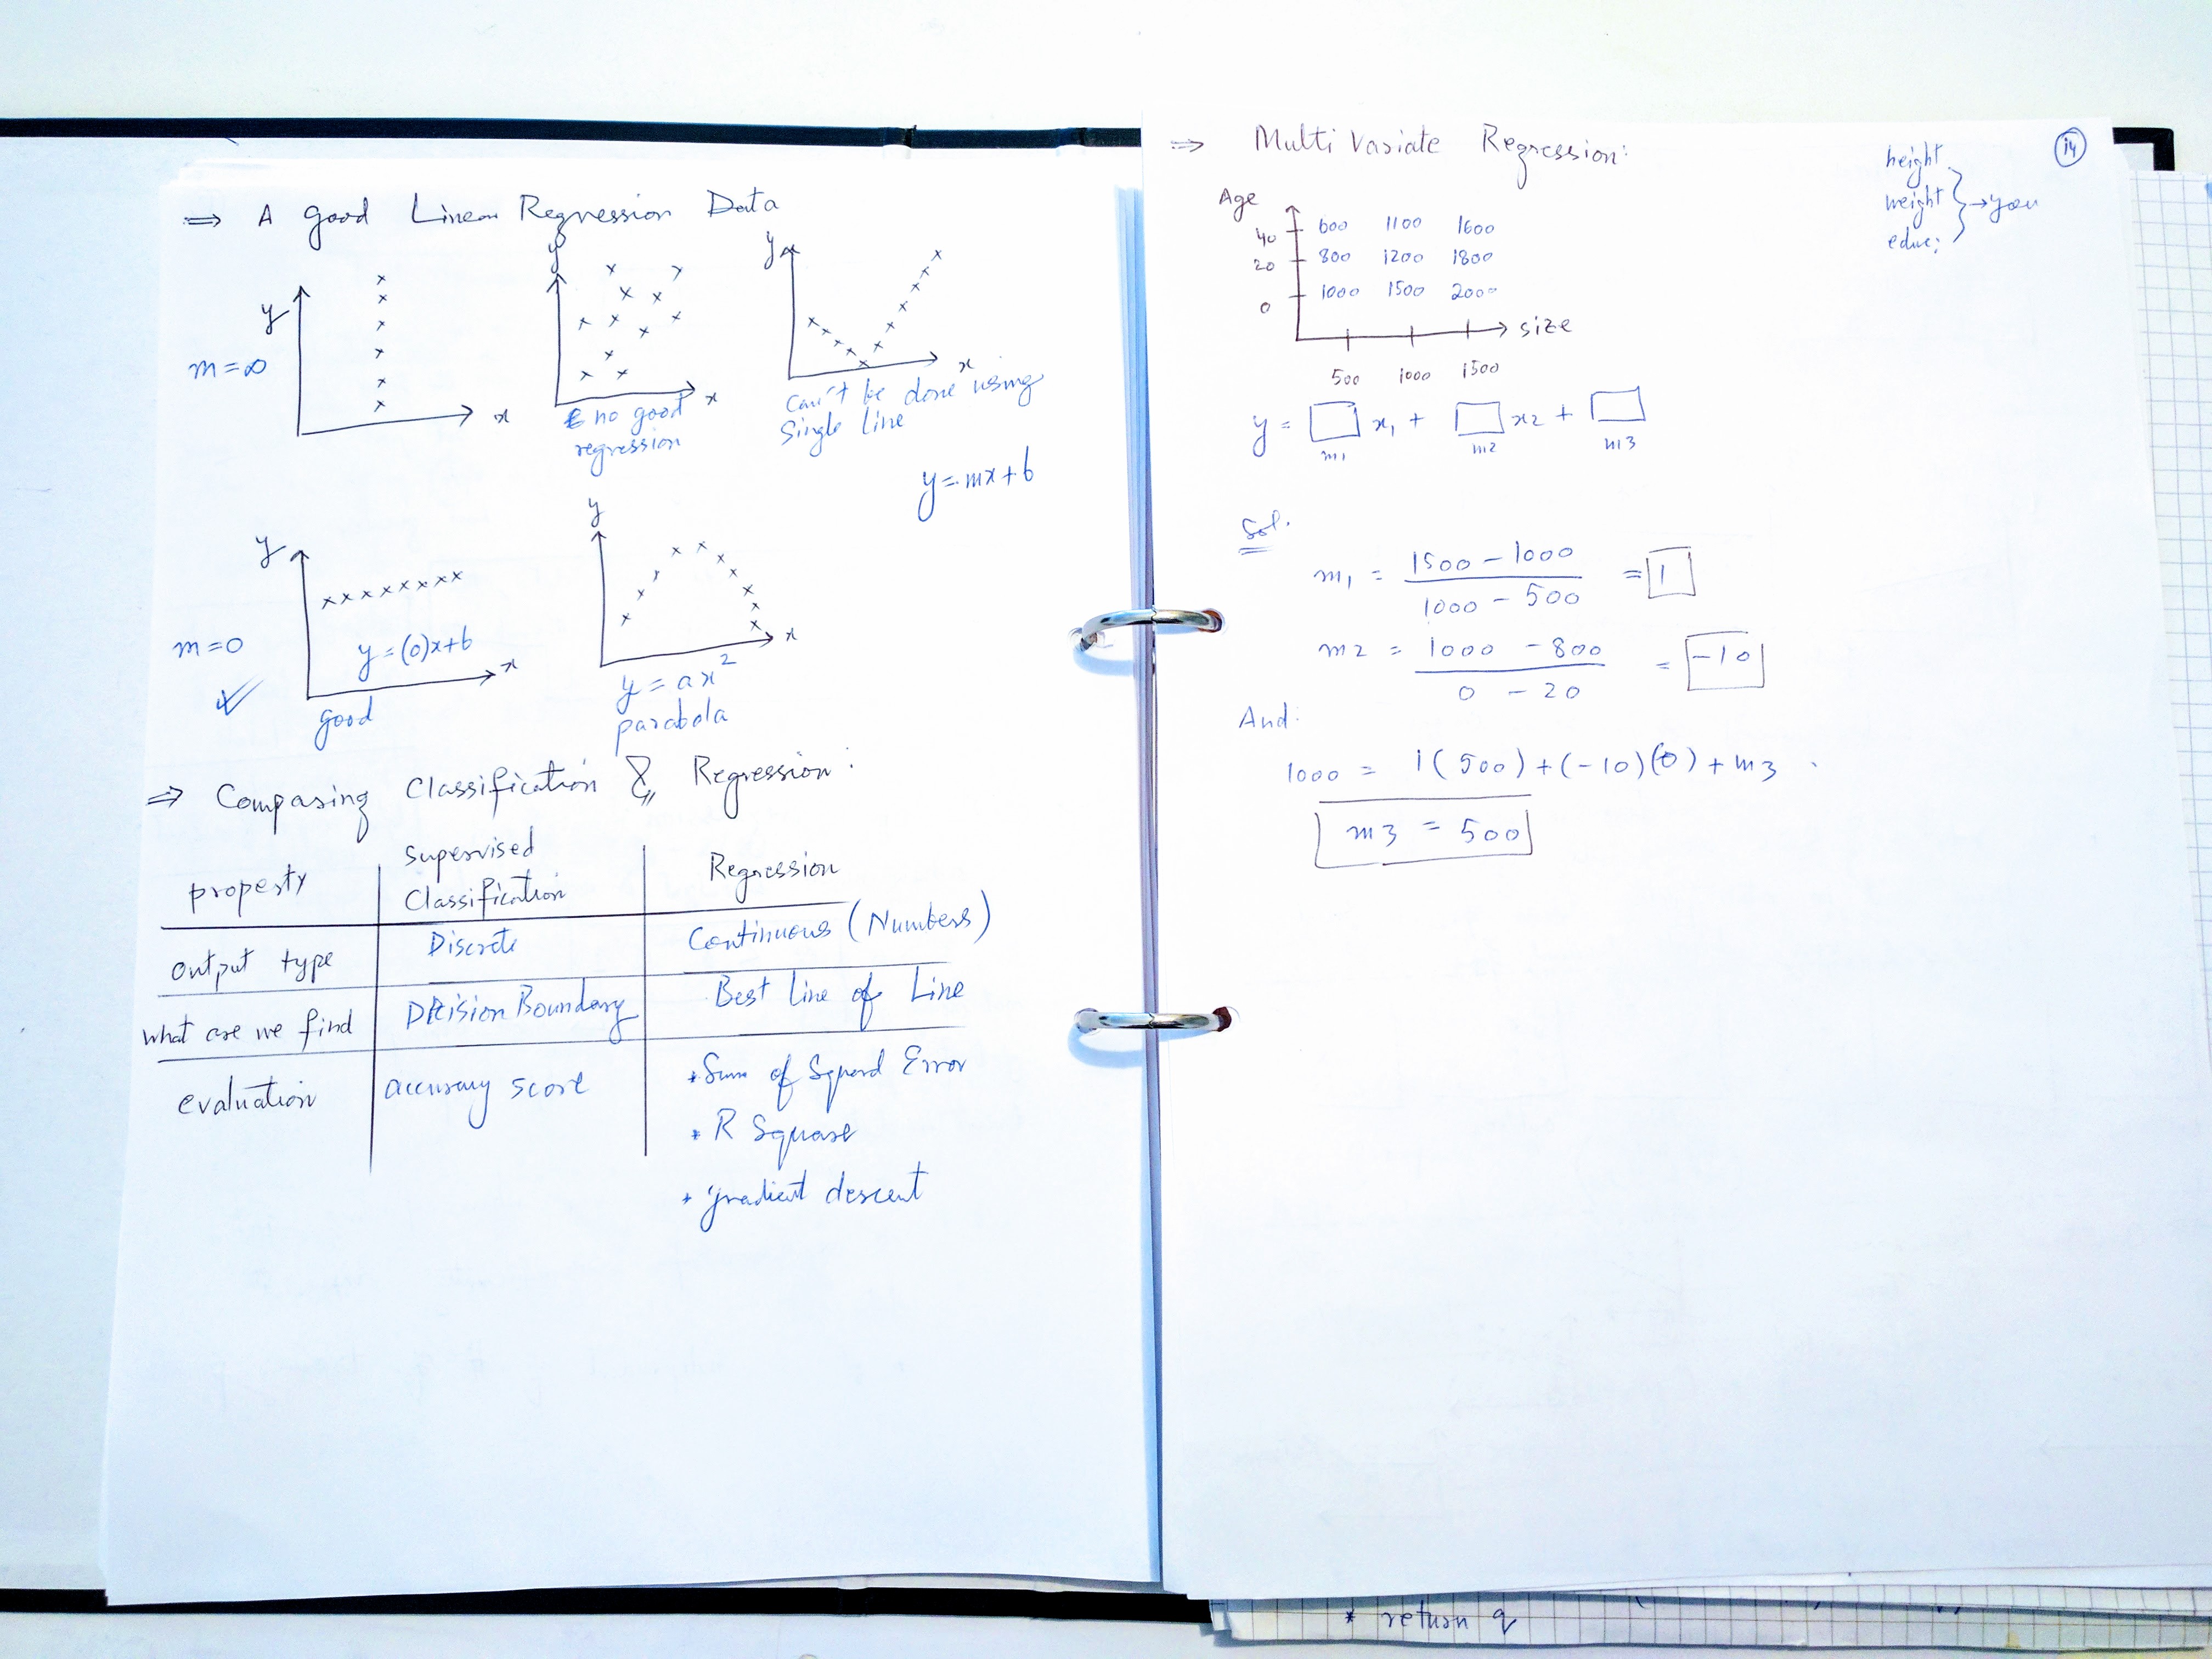 ⇒ A good Linear Regression Data
y
m=∞
x
y
x
no good
regression
y
x
Can't be done using
Single line
y=mx+b
y
m=0
y=(0)x+b
x
good
y
x
y = ax²
parabola
⇒ Comparing Classification & Regression:
property | Supervised Classification | Regression
output type | Discrete | Continuous (Numbers)
What are we find | Decision Boundary | Best Line of Line
evaluation | accuracy score | * Sum of Squard Error
* R Square
* gradient descent
⇒ Multi Variate Regression:
14
height
weight → you
educ;
Age
40 600 1100 1600
20 800 1200 1800
0 1000 1500 2000
size
500 1000 1500
y = □ x₁ + □ x2 + □
m1 m2 m3
Sol.
m₁ = (1500 - 1000) / (1000 - 500) = 1
m2 = (1000 - 800) / (0 - 20) = -10
And:
1000 = 1(500)+(-10)(0)+m3
m3 = 500
* return q